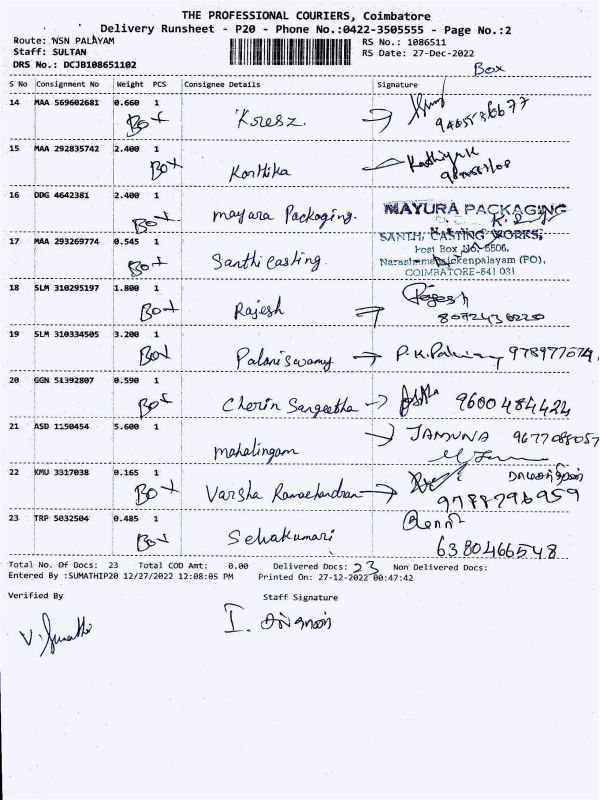 THE PROFESSIONAL COURIERS, Coimbatore
Delivery Runsheet - P20 - Phone No.:0422-3505555 - Page No.:2
Route: NSN PALAYAM
RS No.: 1086511
Staff: SULTAN
RS Date: 27-Dec-2022
DRS No.: DCJB108651102
Box
S No Consignment No Weight PCS Consignee Details Signature
14 MAA 569602681 0.660 1
Box
15 MAA 292835742 2.400 1
Box Karthika
16 DDG 4642381 2.400 1
Box mayura Packaging. MAYURA PACKAGING
17 MAA 293269774 0.545 1
Box Santhi casting
SANTHI CASTING WORKS,
Post Box No. 6606,
Narasimmanaickenpalayam (PO),
COIMBATORE-641 031
18 SLM 310295197 1.800 1
Box Rajesh Rajesh
19 SLM 310334505 3.200 1
Box Palaniswamy
20 GGN 51392807 0.590 1
Box Cherin Sangeetha 9600484424
21 ASD 1150454 5.600 1
mahalingam JAMUNA
22 KMU 3317038 0.165 1
Box Varsha Ramachandran 9788796959
23 TRP 5032504 0.485 1
Box Selvakumari 6380466548
Total No. Of Docs: 23 Total COD Amt: 0.00 Delivered Docs: 23 Non Delivered Docs:
Entered By :SUMATHIP20 12/27/2022 12:08:05 PM Printed On: 27-12-2022 00:47:42
Verified By Staff Signature